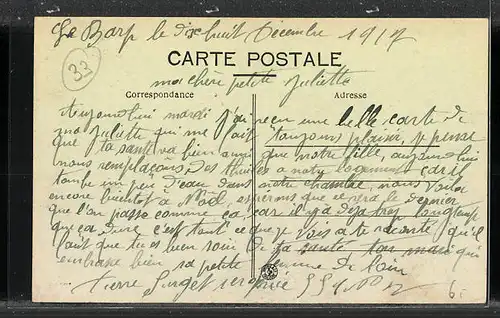 Le Barp le dix huit Décembre 1917
33
CARTE POSTALE
ma chère petite Juliette
Correspondance Adresse
aujourdhui mardi j'ai reçu une belle carte de
ma Juliette qui me fait toujours plaisir, je pense
que ta santé va bien ainsi que notre fille, aujourdhui
nous remplaçons des thuiles a notre logement car il
tombe un peu d'eau dans notre chambre, nous voila
encore bientot a Noël, esperons que ce sera le dernier
que l'on passe comme ça, car il y a deja trop longtemps
que ça dure, c'est tout ce que je vois a te raconter, qu'il
faut que tu es bien soin de ta santé ton mari qui
embrasse bien sa petite femme de loin
Pierre
6.